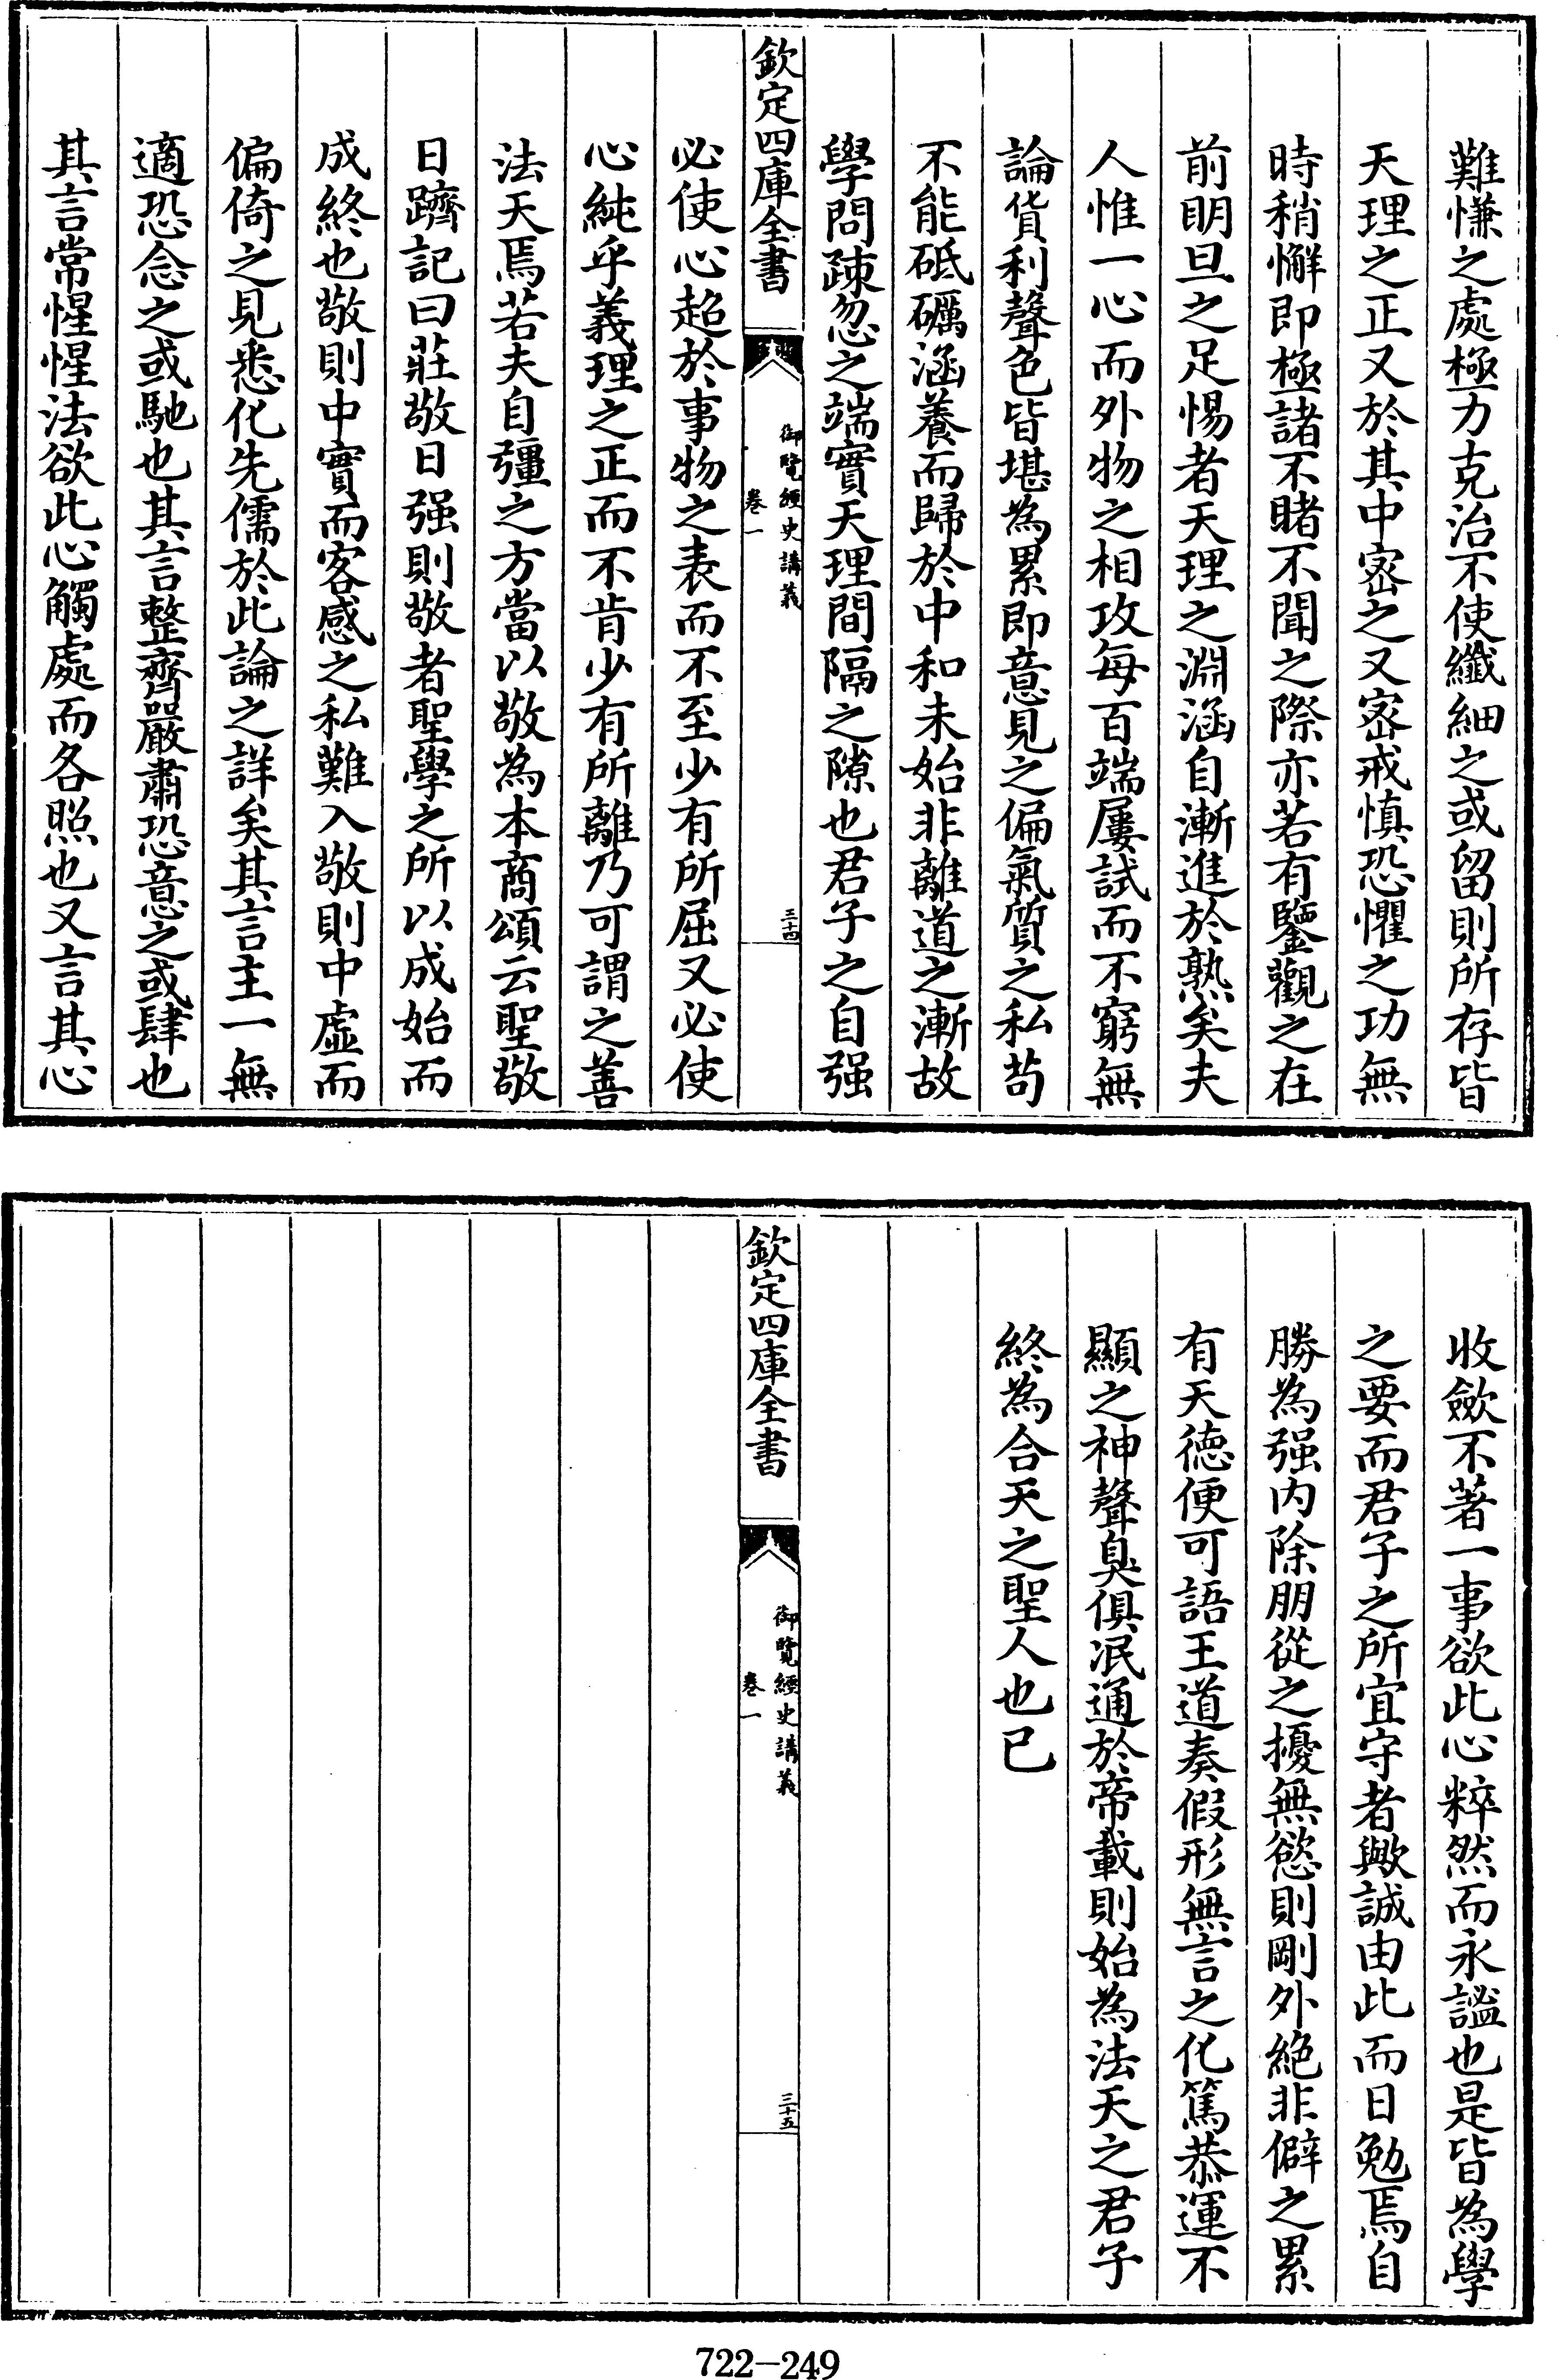 難慊之處極力克治不使纖細之或留則所存皆
天理之正又於其中宻之又宻戒慎恐懼之功無
時稍懈即極諸不睹不聞之際亦若有鑒觀之在
前明旦之足惕者天理之淵涵自漸進於熟矣夫
人惟一心而外物之相攻每百端屢試而不窮無
論貨利聲色皆堪為累即意見之偏氣質之私苟
不能砥礪涵養而歸於中和未始非離道之漸故
學問疎忽之端實天理間隔之隙也君子之自强
欽定四庫全書
御覽經史講義
卷一
三十四
必使心超於事物之表而不至少有所屈又必使
心純乎義理之正而不肯少有所離乃可謂之善
法天焉若夫自彊之方當以敬為本商頌云聖敬
日躋記曰莊敬日强則敬者聖學之所以成始而
成終也敬則中實而客感之私難入敬則中虛而
偏倚之見悉化先儒於此論之詳矣其言主一無
適恐念之或馳也其言整齊嚴肅恐意之或肆也
其言常惺惺法欲此心觸處而各照也又言其心
收歛不著一事欲此心粹然而永謐也是皆為學
之要而君子之所宜守者歟誠由此而日勉焉自
勝為强内除朋從之擾無慾則剛外絶非僻之累
有天德便可語王道奏假形無言之化篤恭運不
顯之神聲臭俱泯通於帝載則始為法天之君子
終為合天之聖人也已
欽定四庫全書
御覽經史講義
卷一
三十五
722-249